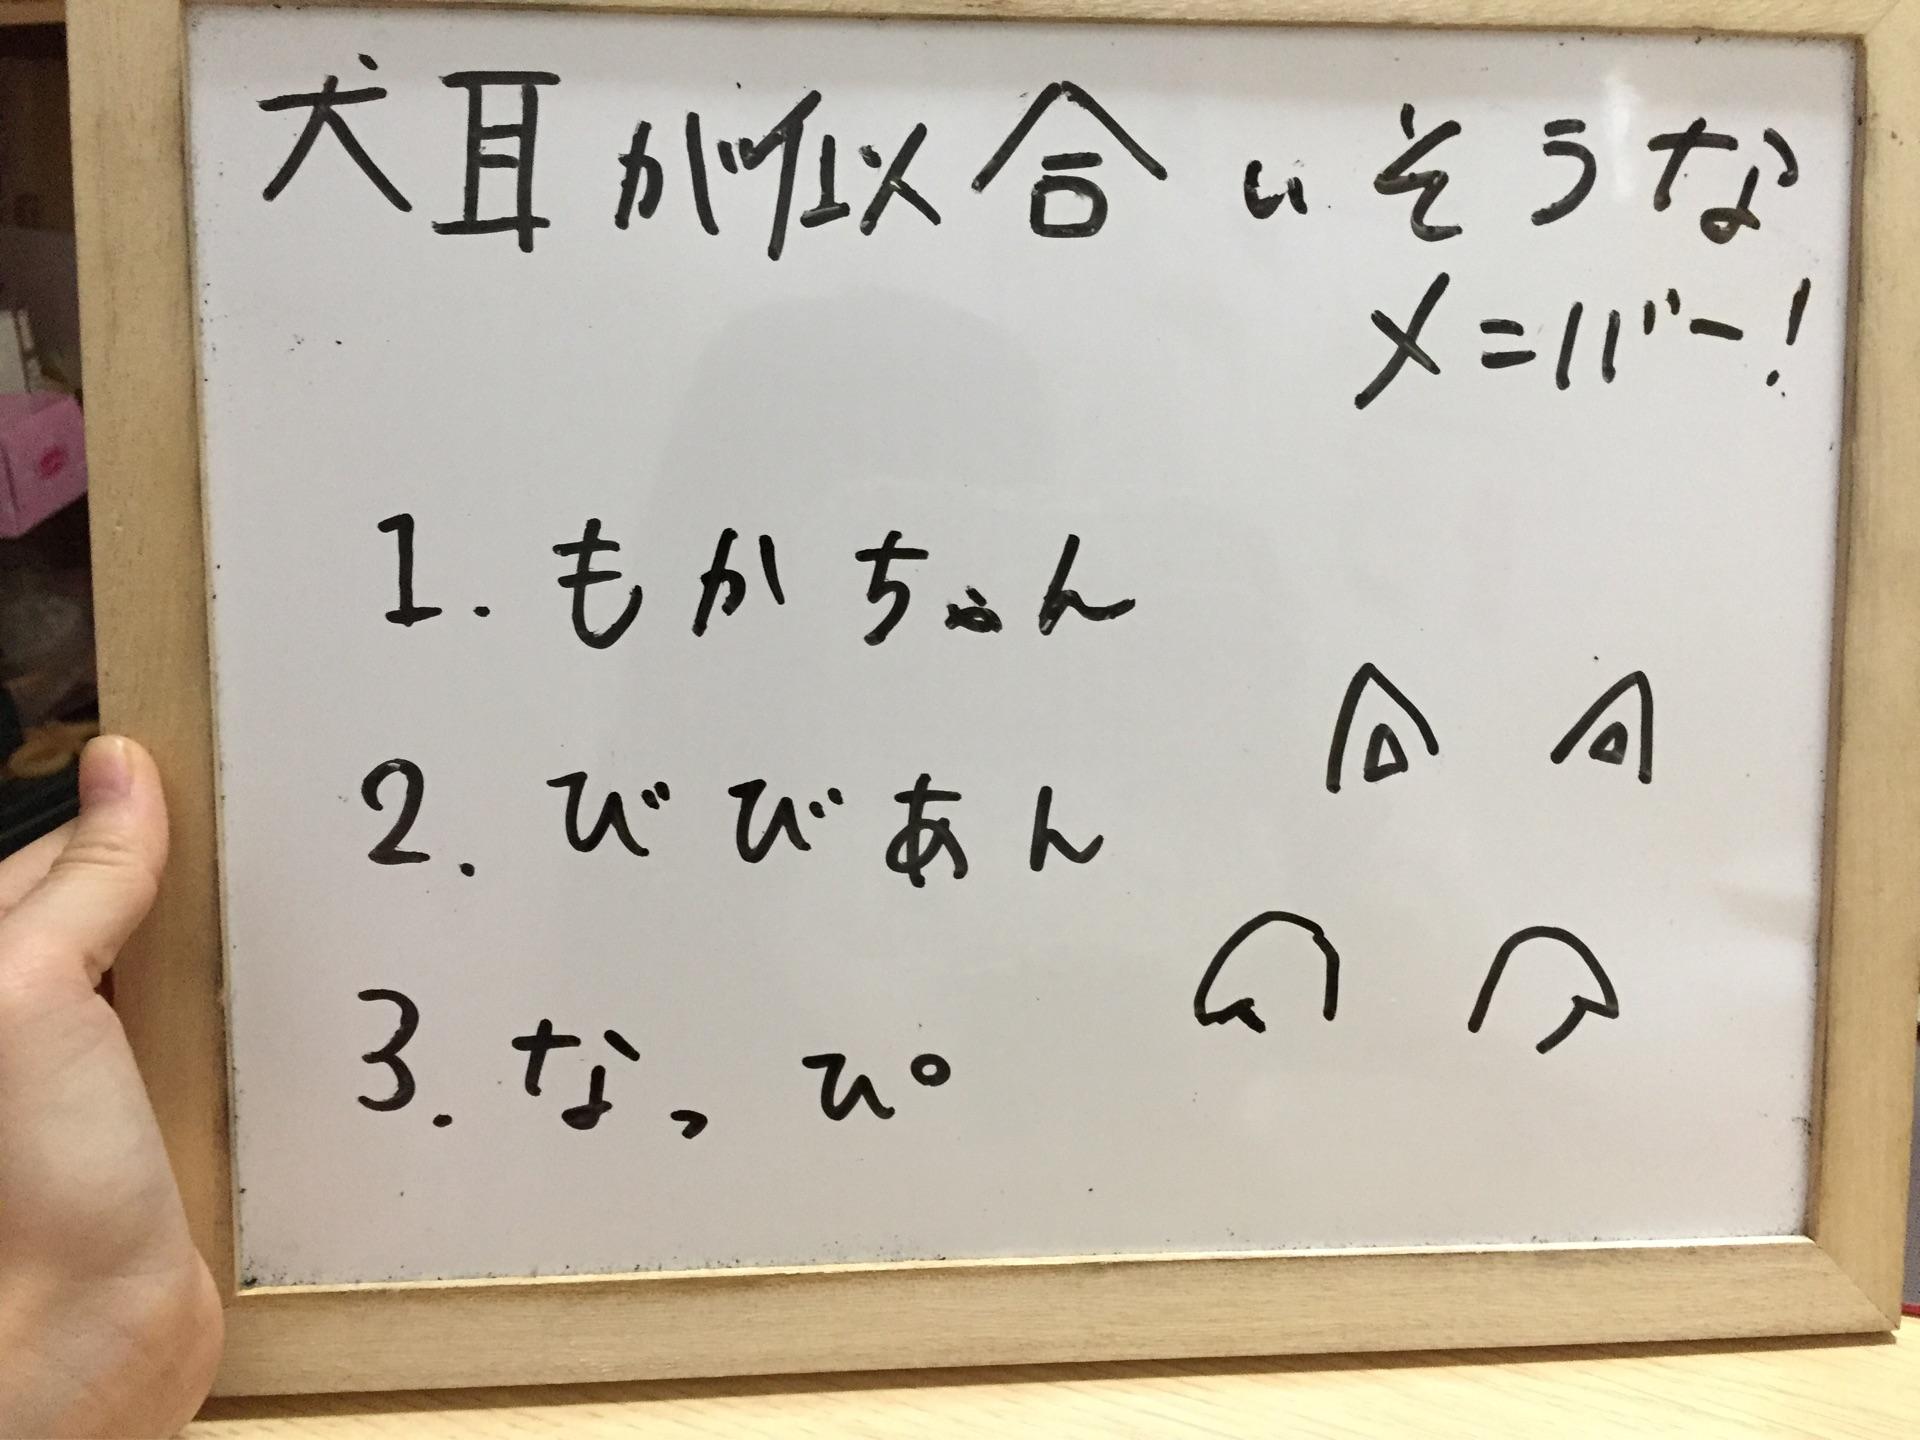 犬耳が似合いそうな
メニバー！
1. もかちゃん
2. びびあん
3. なっぴ